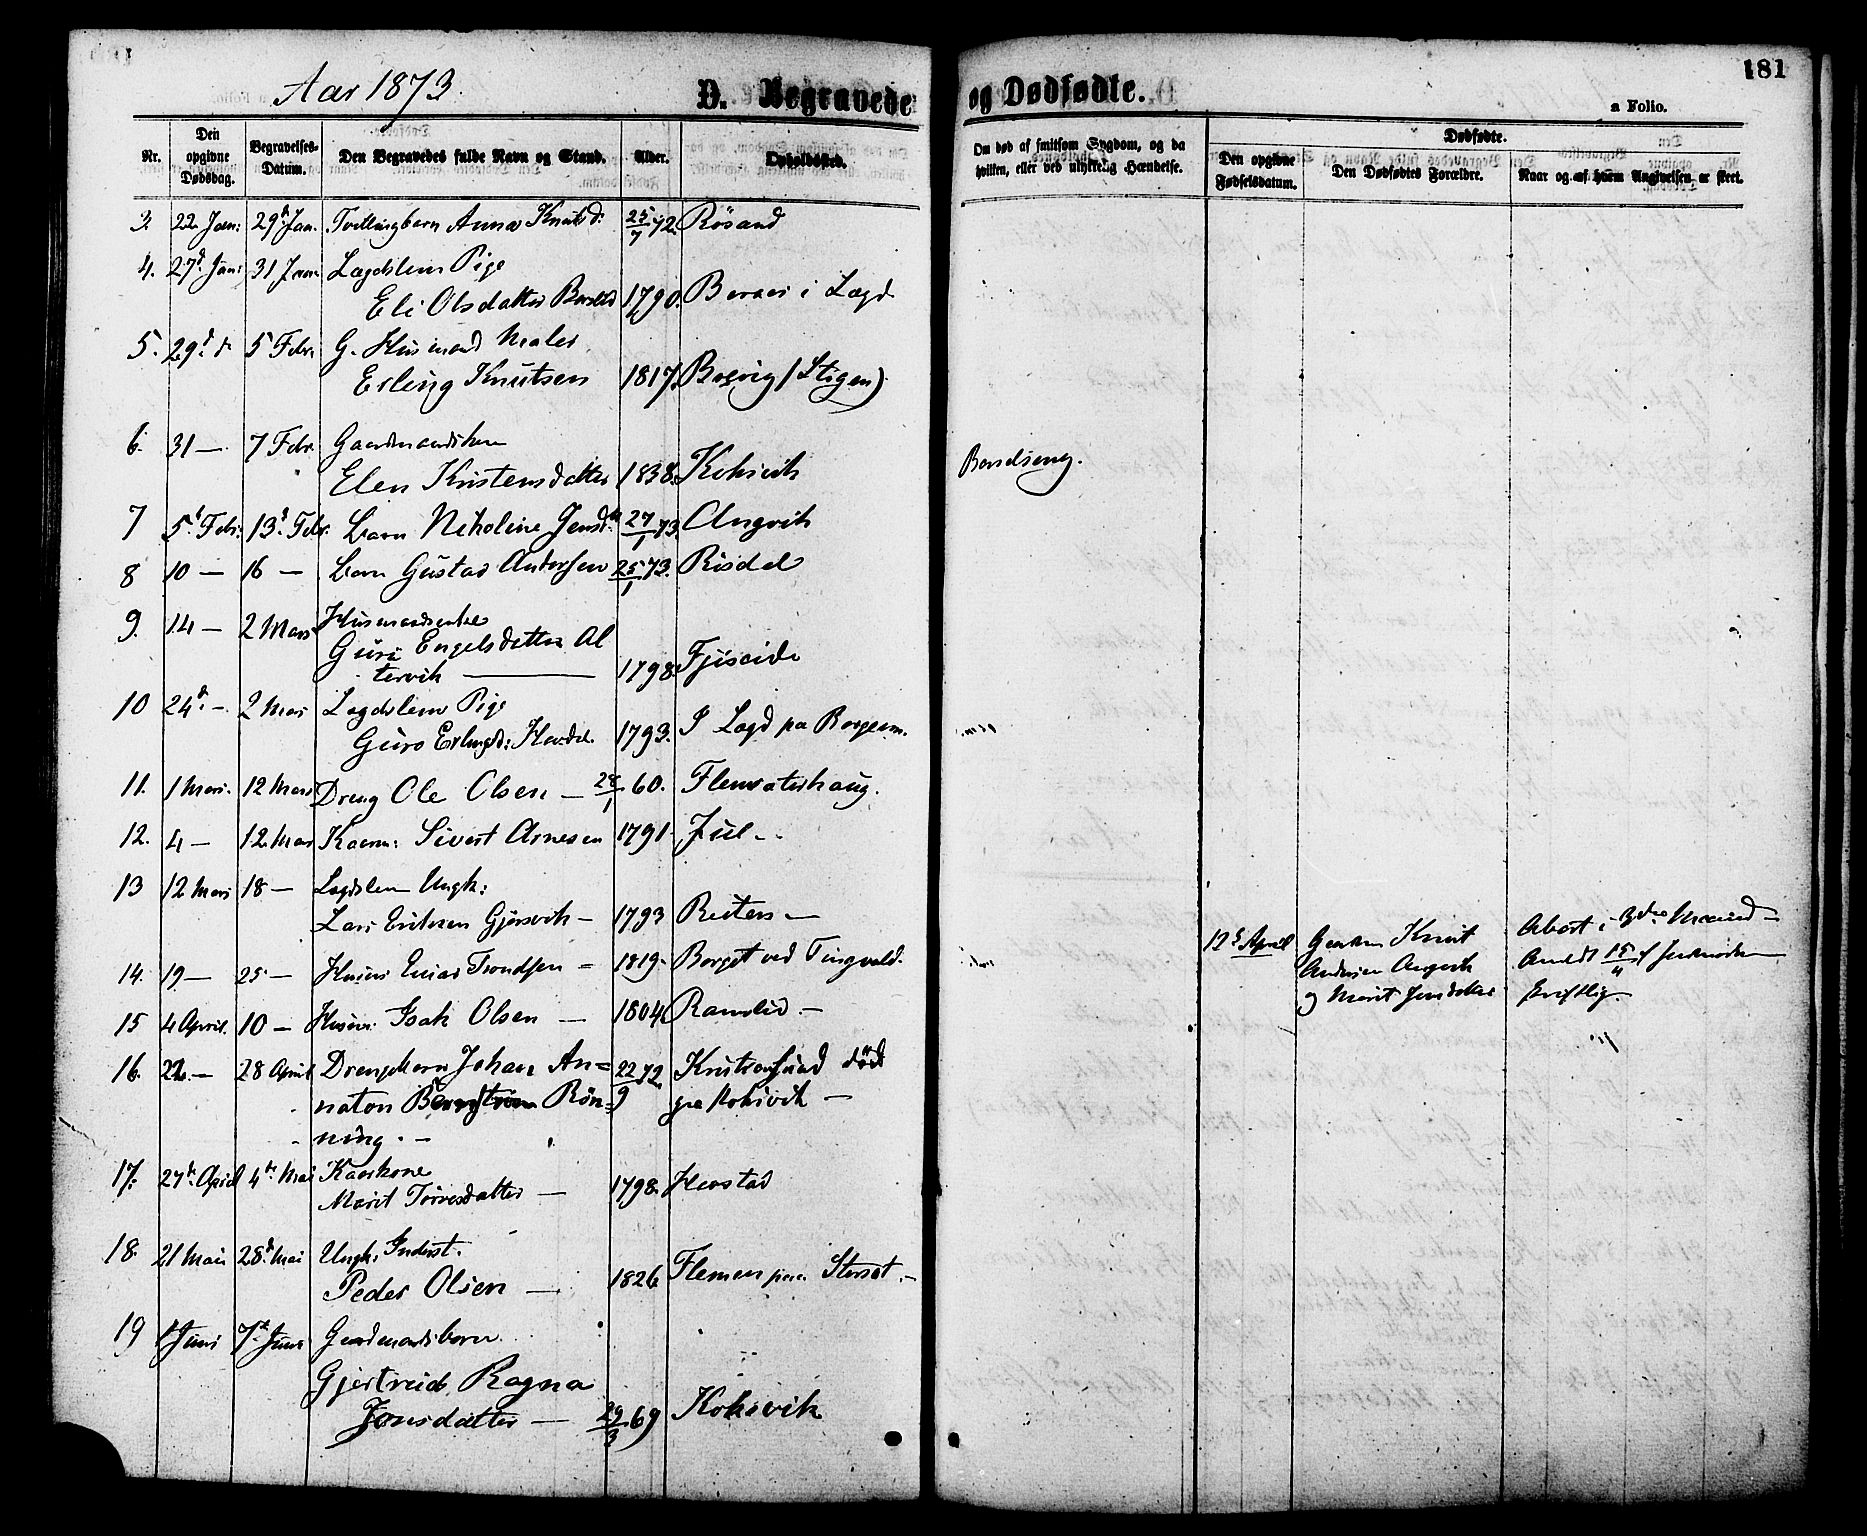 181
Aar 1873.
D. Begravede og Dødfødte.
a Folio.
Nr.
Den opgivne Dødsdag.
Begravelses-Datum.
Den Begravedes fulde Navn og Stand.
Alder.
Opholdssted.
Om død af smitsom Sygdom, og da hvilken, eller ved ulykkelig Hændelse.
Dødfødte.
Den opgivne Fødselsdatum.
Den Dødfødtes Forældre.
Naar og af hvem Angivelsen er skeet.
3. 22 Jan: 29d Jan. Tvillingbarn Anna Knutsd: 25/7 72. Rösand
4. 27d Jan: 31 Jan Lægdslem Pige
Eli Olsdatter 1790. i Lægd
5. 29d 5 Febr. G. Husmand Maler
Erling Knutsen 1817. Bogvig (Stigen)
6. 31 — 7 Febr. Gaardmandskone
Elen Kristensdatter 1838. Koksvik Barselseng.
7 5d Febr: 13d Febr. barn Nikoline Jensdtr 27/1 73. Angvik
8 10 — 16 — barn Gustav Andersen 25/1 73. Risdal
9. 14 — 2 Mars Husmandsenke
Guri Engelsdatter Al
tervik — 1798. Fjöseide
10 24d — 2 Mars Lægdslem Pige
Guro Erlingsd: 1793. I Lægd paa Borgenm.
11. 1 Mars. 12 Mars Dreng Ole Olsen — 28/1 60. Flemsæterhaug.
12. 4 — 12 Mars Kaarm: Sivert Arnesen 1791. Jul —
13 12 Mars 18 — Lægdslem Ungk:
Lars Eriksen Gjersvik — 1793 Reiten —
14. 19 — 25 — Husm: Einar Trondsen — 1819. Borget ved Tingvold.
12d April Gaardm. Knut Abort i 3die Maaned —
Andersen Angvik Anmeldt 15/4 af Jordmoderen
og Marit Jensdatter skriftlig.
15 4 April. 10 — Husm: Isak Olsen — 1804. Ramslid. —
16. 22 — 28 April Drengebarn Johan An=
naton Bernstrøm Rön=
ning. — 22/9 72. Kristiansund död
paa Koksvik —
17. 27de April 4de Mai Kaarkone
Marit Torresdatter — 1798. Hovstad
18. 21 Mai 28d Mai Ungk: Inderst.
Peder Olsen — 1826 Flemen —
19 1 Juni 7d Juni Gaardmandsbarn
Gjertruid Ragna
Jonsdatter — 29/3 69 Koksvik